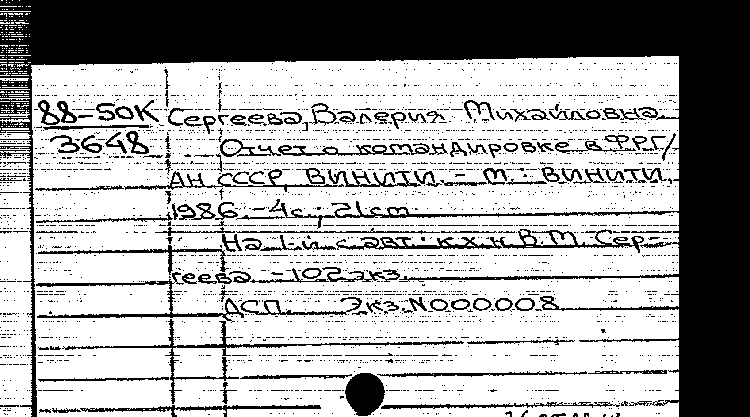 88-50К Сергеева, Валерия Михайловна.
3648 Отчет о командировке в ФРГ/
АН СССР, ВИНИТИ. - М.: ВИНИТИ,
1986. - 4с.; 21см.
На 1-й с авт.: к.х.н В.М. Сер-
геева. - 102 экз.
ДСП. Экз. N000008